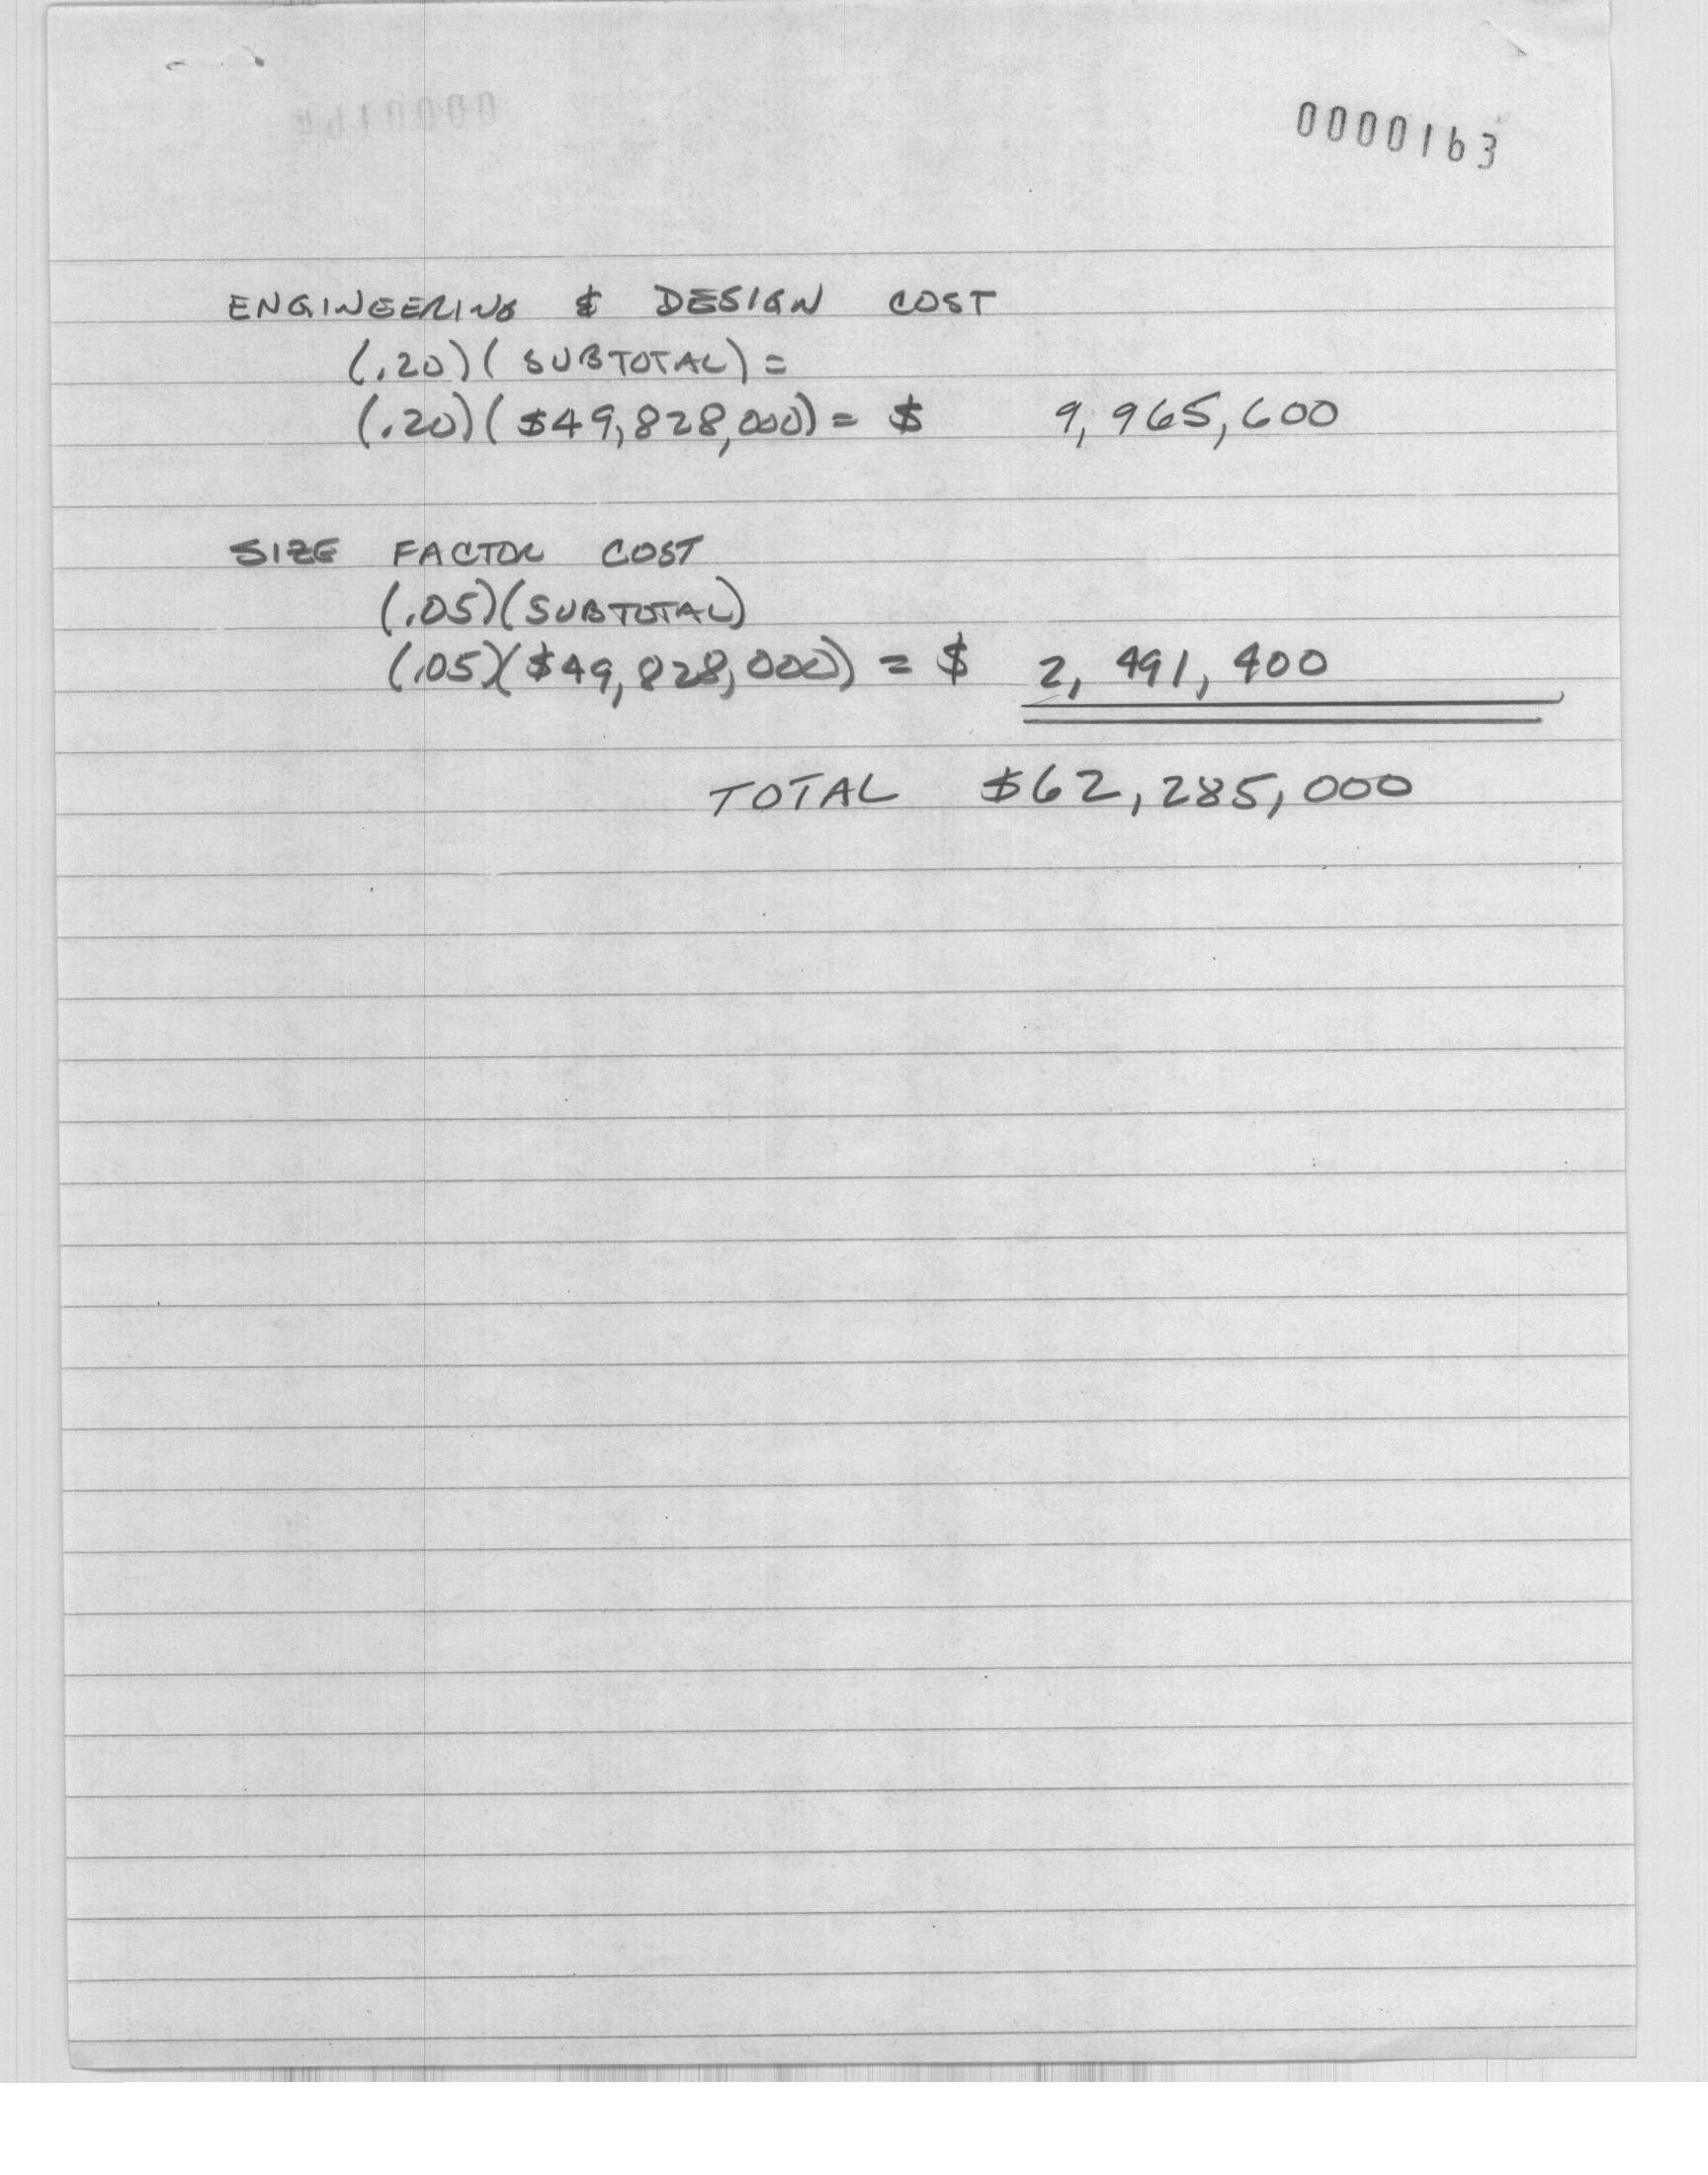 0000163
ENGINEERING & DESIGN COST
(.20)(SUBTOTAL) =
(.20)($49,828,000) = $ 9,965,600
SIZE FACTOR COST
(.05)(SUBTOTAL)
(.05)($49,828,000) = $ 2,491,400
TOTAL $62,285,000